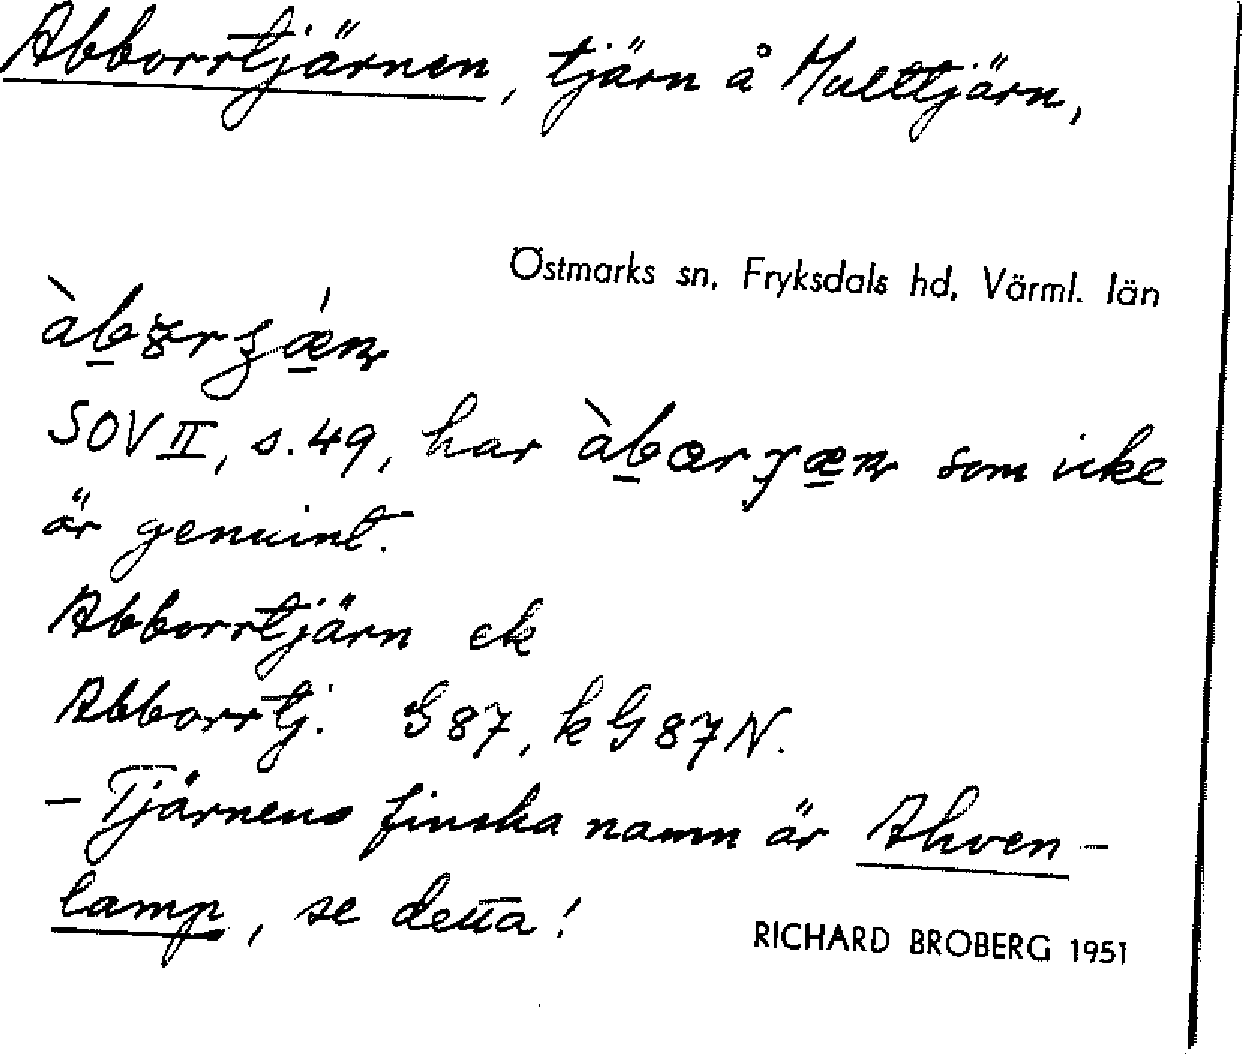 Abborrtjärnen, tjärn å Multtjärn,
Östmarks sn, Fryksdals hd, Värml. län
SOV II, s. 49, har som icke
är genuint.
Abborrtjärn ek
Abborrtj. G 87, k G 87 N.
- Tjärnens finska namn är Ahven-
lamp, se detta!
RICHARD BROBERG 1951